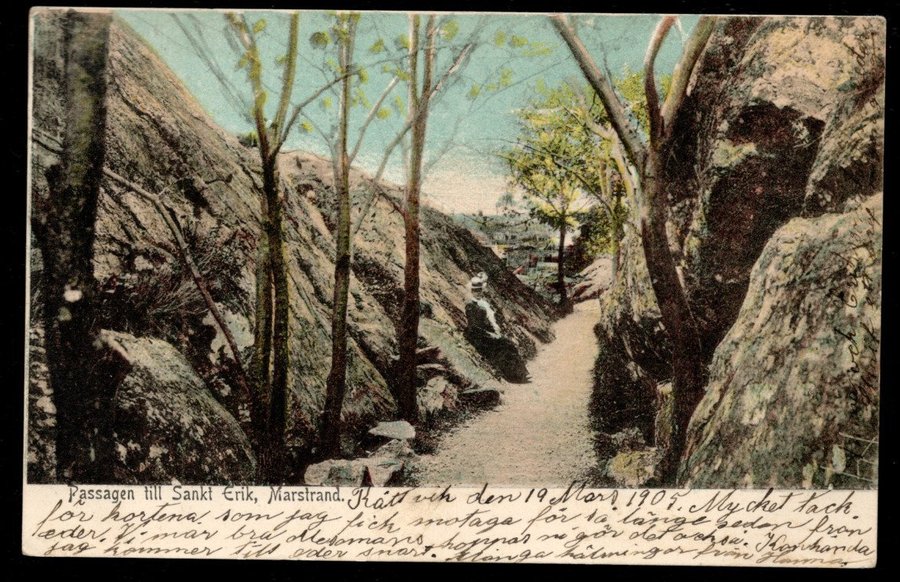 Passagen till Sankt Erik, Marstrand.
Rätsvih den 19 Mars 1905. Mycket tack
för kortena som jag fick motaga för så länge sedan från
eder. Vi mår bra allesmans hoppas ni gör det också. Kanhända
jag kommer till eder snart. Många hälsningar från Hanna